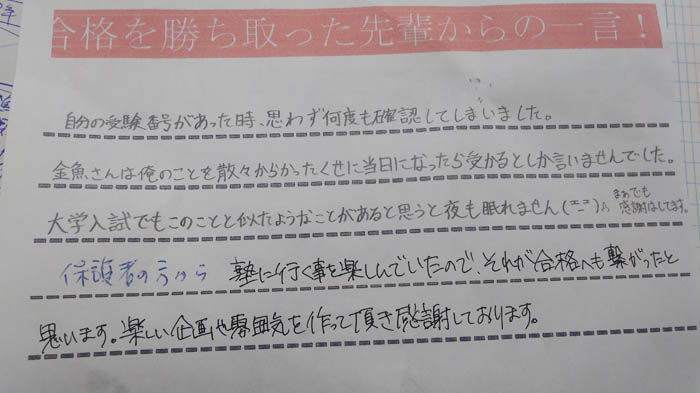 合格を勝ち取った先輩からの一言！
自分の受験番号があった時、思わず何度も確認してしまいました。
金魚さんは俺のことを散々からかったくせに当日になったら受かるとしか言いませんでした。
大学入試でもこのことと似たようなことがあると思うと夜も眠れません
まぁでも
感謝はしてます。
保護者の方から 塾に行く事を楽しんでいたので、それが合格へも繋がったと
思います。楽しい企画や雰囲気を作って頂き感謝しております。